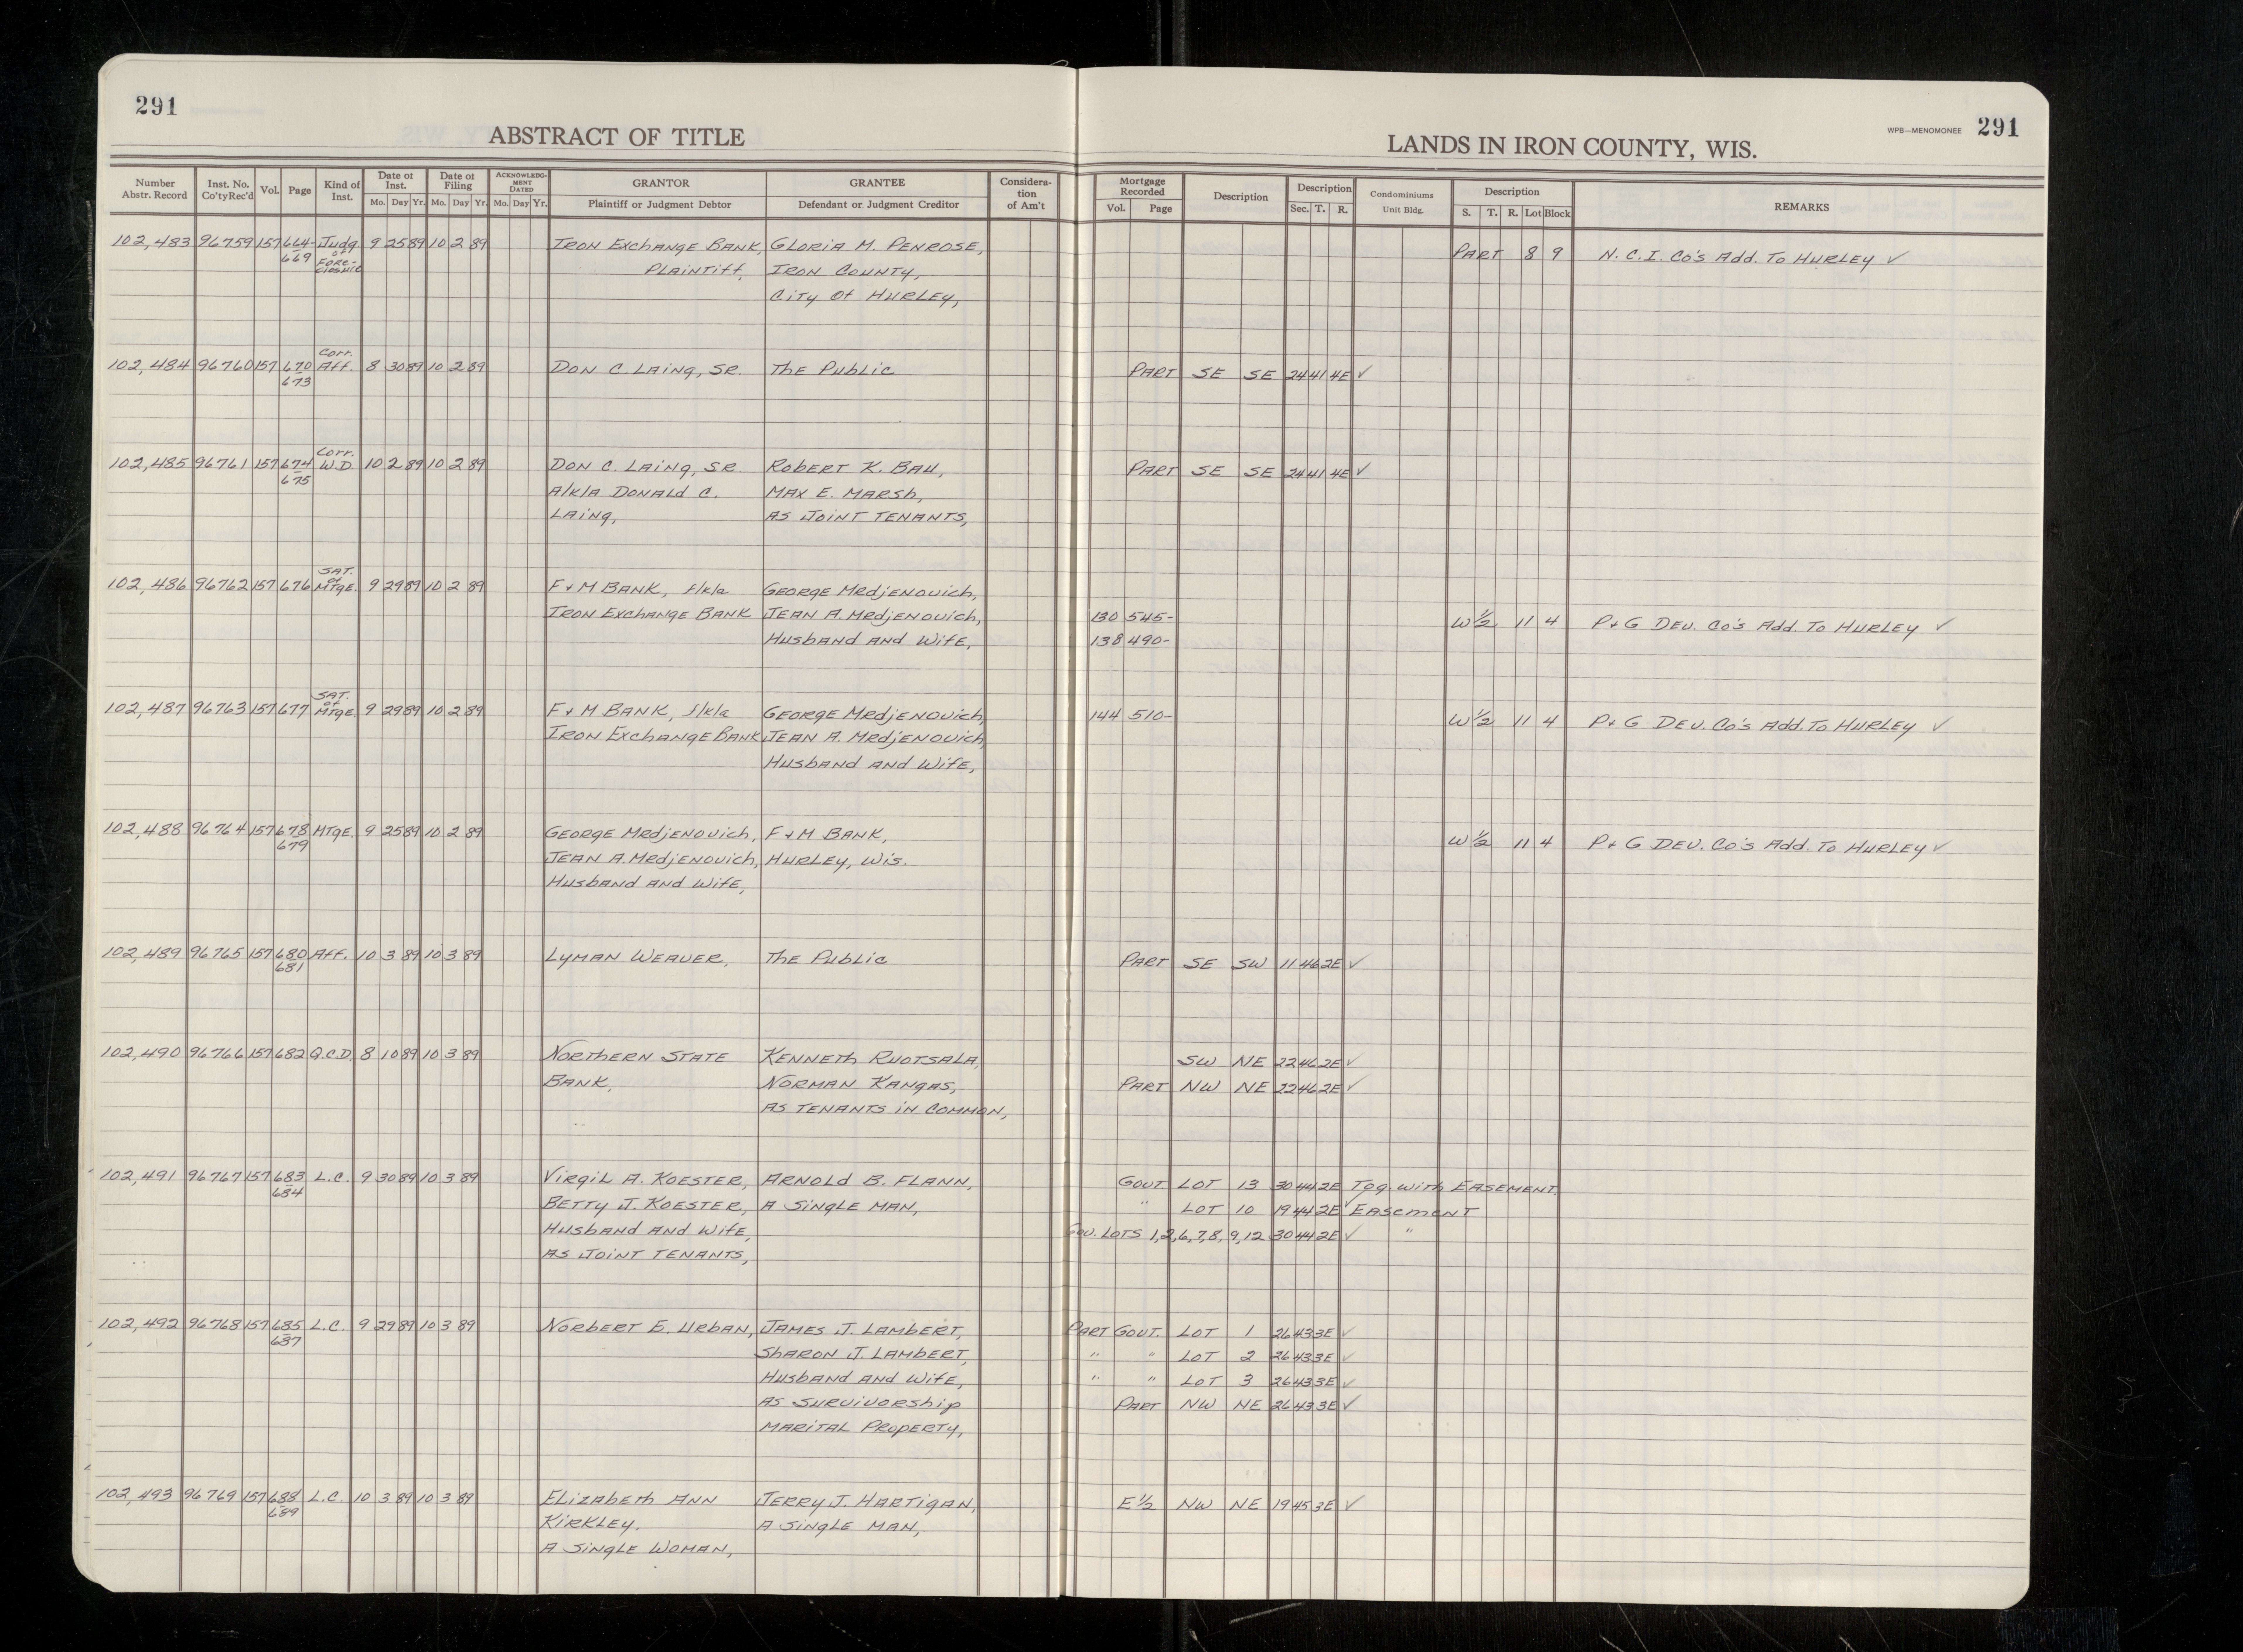 291
ABSTRACT OF TITLE
LANDS IN IRON COUNTY, WIS.
WPB—MENOMONEE 291
Number Abstr. Record Inst. No. Co'ty Rec'd Vol. Page Kind of Inst. Date of Inst. Mo. Day Yr. Date of Filing Mo. Day Yr. ACKNOWLEDGMENT DATED Mo. Day Yr. GRANTOR Plaintiff or Judgment Debtor GRANTEE Defendant or Judgment Creditor Consideration of Am't Mortgage Recorded Vol. Page Description Description Sec. T. R. Condominiums Unit Bldg. Description S. T. R. Lot Block REMARKS
102,483 96759 157 664- Judg. 9 25 89 10 2 89 Iron Exchange Bank, Gloria M. Penrose, Part 8 9 N.C.I. Co's Add. To Hurley ✓
669 of Fore- Plaintiff, Iron County,
closure City of Hurley,
Corr.
102,484 96760 157 670 Aff. 8 30 89 10 2 89 Don C. Laing, Sr. The Public Part SE SE 24 41 4E ✓
673
Corr.
102,485 96761 157 674 W.D. 10 2 89 10 2 89 Don C. Laing, Sr. Robert K. Bau, Part SE SE 24 41 4E ✓
675 A/k/a Donald C. Max E. Marsh,
Laing, as Joint Tenants,
Sat. of
102,486 96762 157 676 Mtge. 9 29 89 10 2 89 F & M Bank, f/k/a George Medjenovich,
Iron Exchange Bank Jean A. Medjenovich, 130 545- W 1/2 11 4 P & G Dev. Co's Add. To Hurley ✓
Husband and Wife, 138 490-
Sat. of
102,487 96763 157 677 Mtge. 9 29 89 10 2 89 F & M Bank, f/k/a George Medjenovich, 144 510- W 1/2 11 4 P & G Dev. Co's Add. To Hurley ✓
Iron Exchange Bank Jean A. Medjenovich,
Husband and Wife,
102,488 96764 157 678 Mtge. 9 25 89 10 2 89 George Medjenovich, F & M Bank, W 1/2 11 4 P & G Dev. Co's Add. To Hurley ✓
679 Jean A. Medjenovich, Hurley, Wis.
Husband and Wife,
102,489 96765 157 680 Aff. 10 3 89 10 3 89 Lyman Weaver, The Public Part SE SW 11 46 2E ✓
681
102,490 96766 157 682 Q.C.D. 8 10 89 10 3 89 Northern State Kenneth Ruotsala, SW NE 22 46 2E ✓
Bank, Norman Kangas, Part NW NE 22 46 2E ✓
as Tenants in Common,
102,491 96767 157 683 L.C. 9 30 89 10 3 89 Virgil A. Koester, Arnold B. Flann, Govt Lot 13 30 44 2E Tog. with Easement.
684 Betty J. Koester, A Single Man, " Lot 10 19 44 2E ✓ Easement
Husband and Wife, Gov. Lots 1,2,6,7,8,9,12 30 44 2E ✓ "
as Joint Tenants,
102,492 96768 157 685 L.C. 9 29 89 10 3 89 Norbert E. Urban, James J. Lambert, Part Govt. Lot 1 26 43 3E ✓
687 Sharon J. Lambert, " " Lot 2 26 43 3E ✓
Husband and Wife, " " Lot 3 26 43 3E ✓
as Survivorship Part NW NE 26 43 3E ✓
Marital Property,
102,493 96769 157 688 L.C. 10 3 89 10 3 89 Elizabeth Ann Jerry J. Hartigan, E 1/2 NW NE 19 45 3E ✓
689 Kirkley. A Single Man,
A Single Woman,